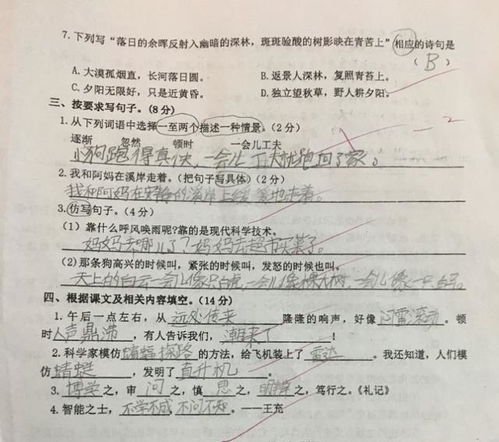 7.下列写“落日的余晖反射入幽暗的深林，斑斑驳驳的树影映在青苔上”相应的诗句是
(B)
A.大漠孤烟直，长河落日圆。 B.返景入深林，复照青苔上。
C.夕阳无限好，只是近黄昏。 D.独立望秋草，野人耕夕阳。
三、按要求写句子。(8分)
1.从下列词语中选择一至两个描述一种情景。(2分) -2
逐渐 忽然 顿时 一会儿工夫
小狗跑得真快，一会儿工夫就跑回了家。
2.我和阿妈在溪岸走着。(把句子写具体)(2分)
我和阿妈在 的溪岸上 地走着。
3.仿写句子。(4分)
(1)靠什么呼风唤雨呢?靠的是现代科学技术。
妈妈去哪儿了?妈妈去超市买菜了。
(2)那条狗高兴的时候叫，紧张的时候叫，发怒的时候也叫。
天上的白云一会儿像只白虎,一会儿像棵大树,一会儿像一匹白马。
四、根据课文及相关内容填空。(14分)
1.午后一点左右，从远处传来隆隆的响声，好像闷雷滚动。顿
时人声鼎沸，有人告诉我们，潮来了！
2.科学家模仿蝙蝠探路的方法，给飞机装上了雷达。我还知道，人们模
仿蜻蜓，发明了直升机。
3.博学之，审问之，慎思之，明辨之，笃行之。《礼记》
4.智能之士，不学不成，不问不知。——王充